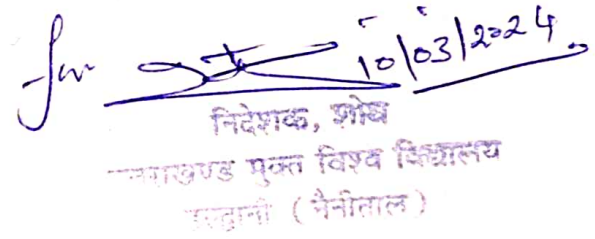 for 10/03/2024
निदेशक, शोध
उत्तराखण्ड मुक्त विश्व विद्यालय
हल्द्वानी (नैनीताल)